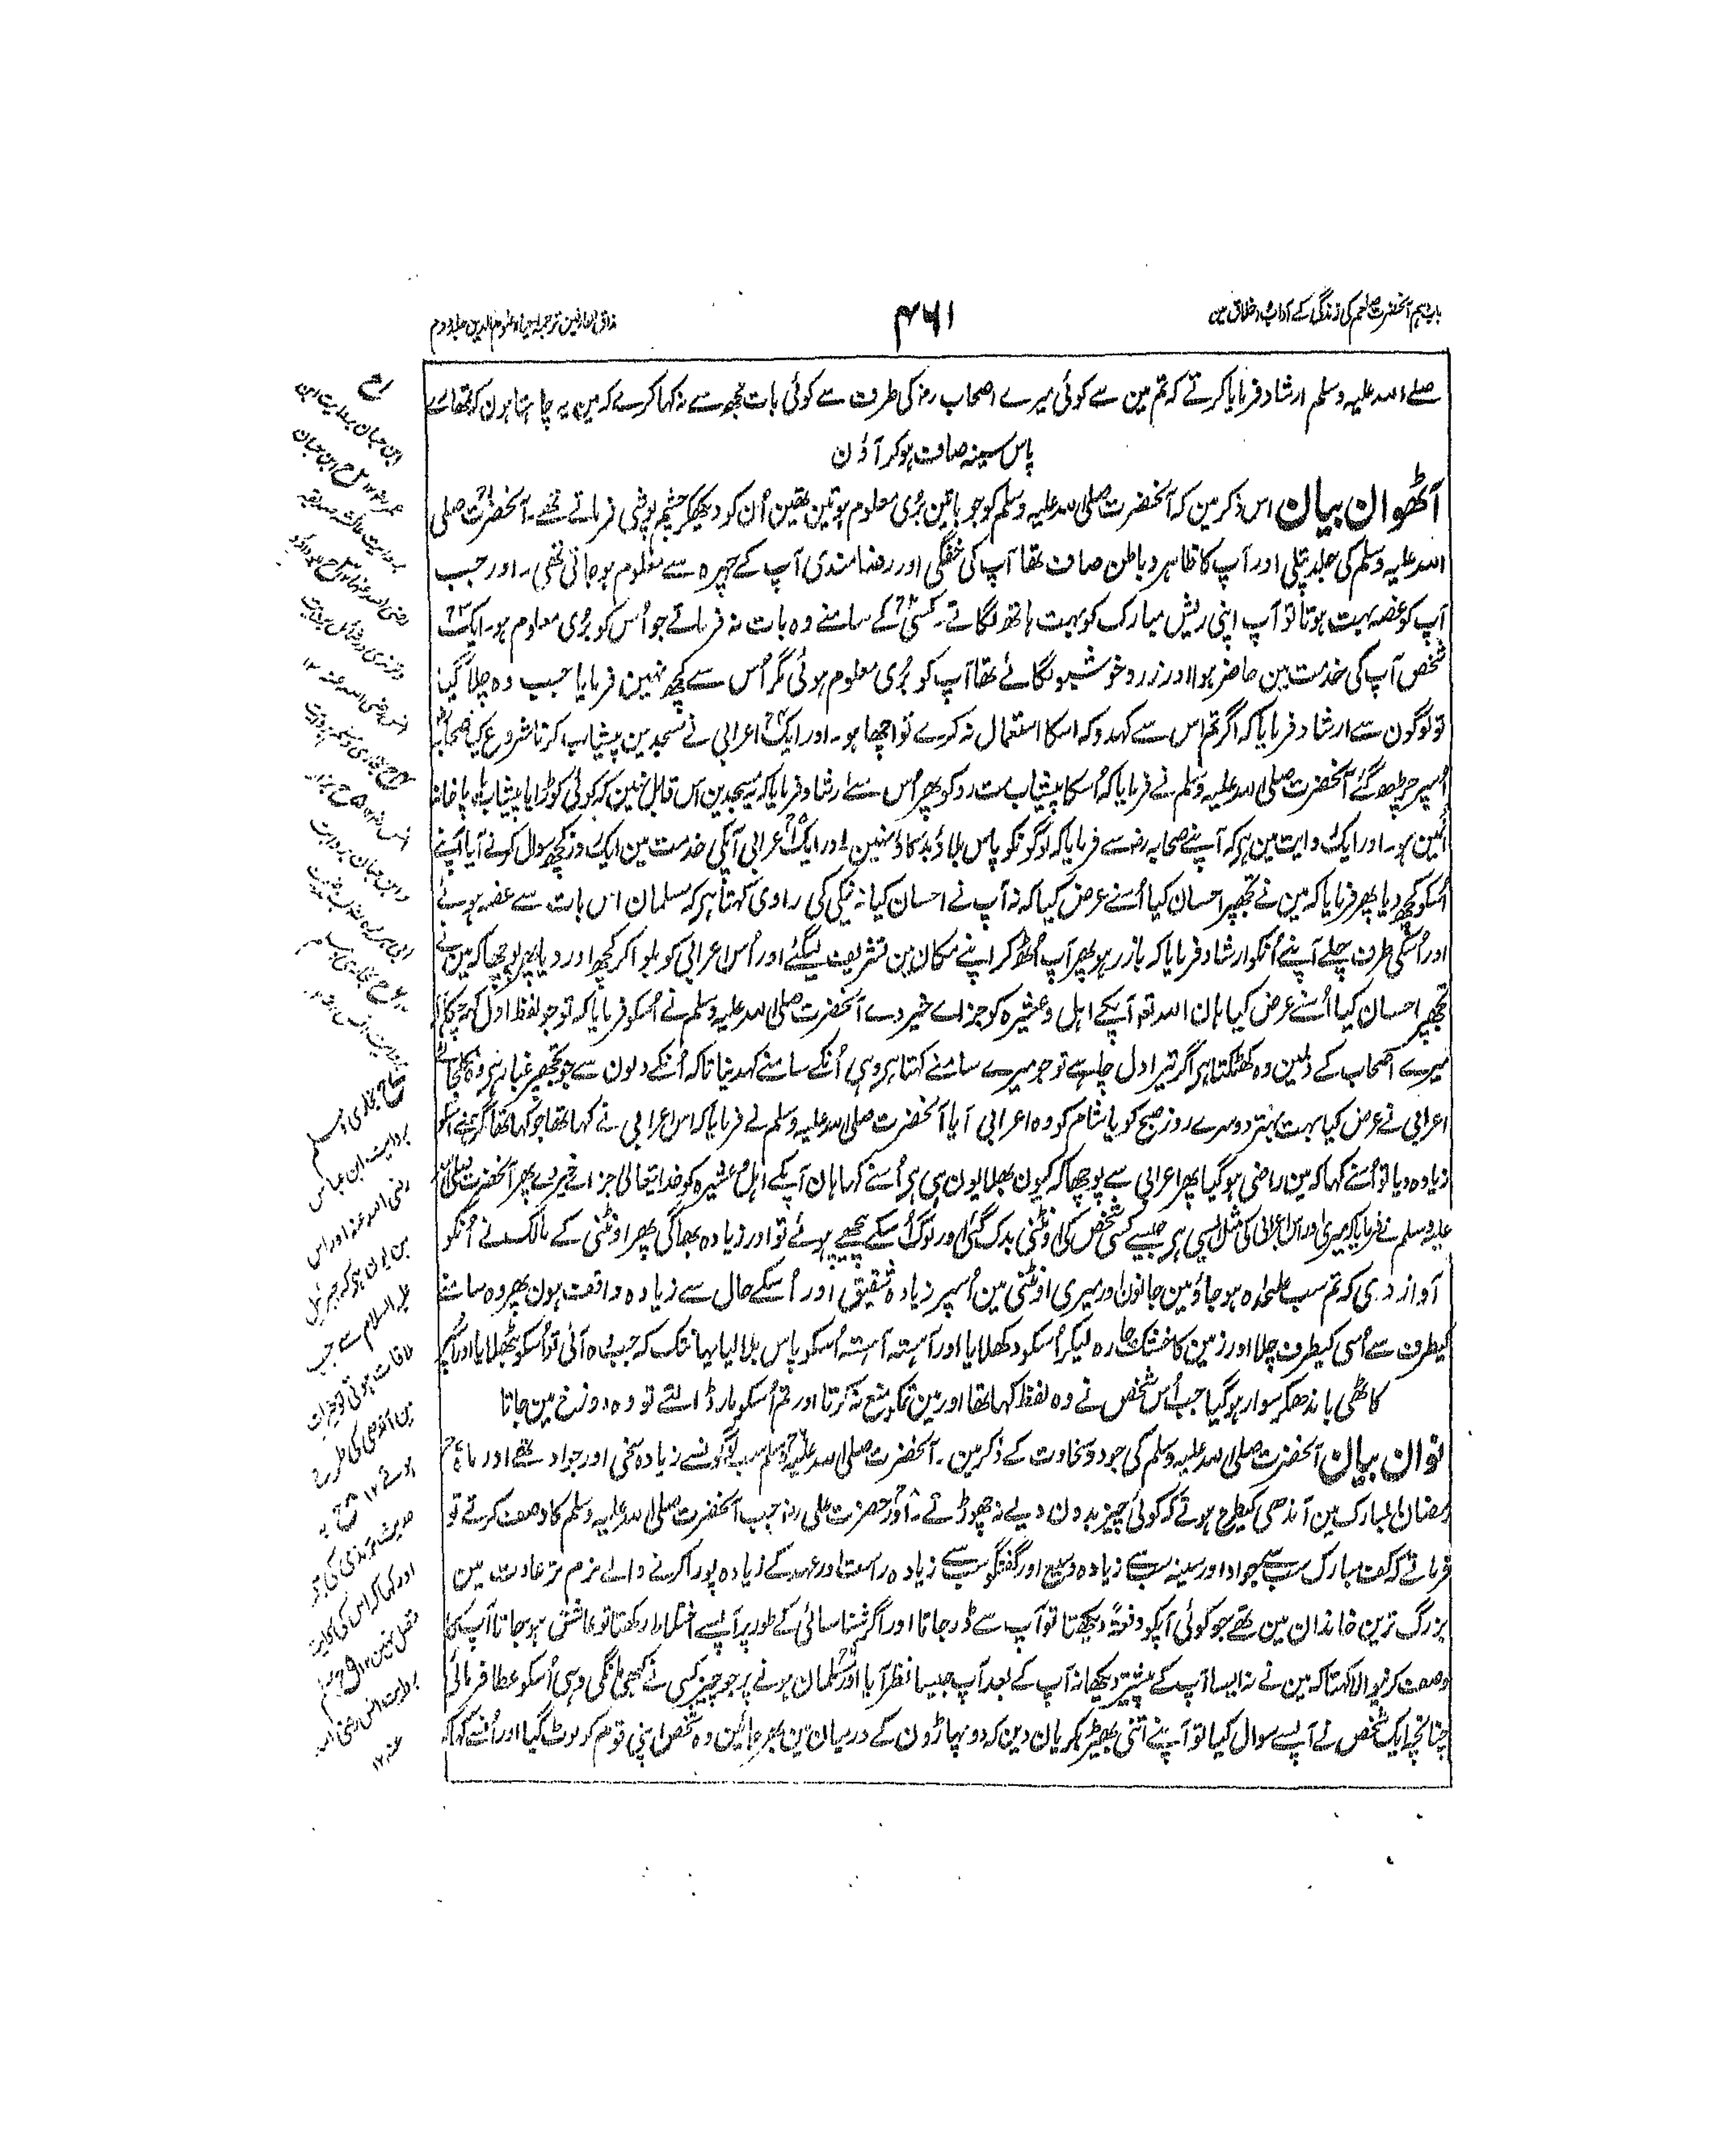 باب دہم آنحضرت صلعم کی زندگی کے آداب و اخلاق مین
۴۶۱
مذاق العارفین ترجمہ احیاء علوم الدین جلد دوم
صلے اللہ علیہ وسلم ارشاد فرمایا کرتے کہ تم مین سے کوئی میرے اصحاب رضہ کی طرف سے کوئی بات مجھ سے نہ کہا کرے کہ مین یہ چاہتا ہون کہ تمھارے
پاس سینہ صاف ہو کر آؤن
آٹھوان بیان اس ذکر مین کہ آنحضرت صلی اللہ علیہ وسلم کو جو باتین بُری معلوم ہوتین تھین اُن کو دیکھکر چشم پوشی فرماتے تھے۔ آنحضرت صلی
اللہ علیہ وسلم کی جلد پتلی اور آپ کا ظاہر و باطن صاف تھا آپ کی خفگی اور رضامندی آپ کے چہرہ سے معلوم ہو جاتی تھی۔ اور جب
آپ کو غصہ بہت ہوتا تو آپ اپنی ریش مبارک کو بہت ہاتھ لگاتے۔ کسی کے سامنے وہ بات نہ فرماتے جو اُس کو بُری معلوم ہو۔ ایک
شخص آپ کی خدمت مین حاضر ہوا اور زرد خوشبو لگائے تھا آپ کو بُری معلوم ہوئی مگر اُس سے کچھ نہین فرمایا جب وہ چلا گیا
تو لوگون سے ارشاد فرمایا کہ اگر تم اس سے کہدو کہ اسکا استعمال نہ کرے تو اچھا ہو۔ اور ایک اعرابی نے مسجد مین پیشاب کرنا شروع کیا صحابہ
اُسپر چڑھ گئے آنحضرت صلی اللہ علیہ وسلم نے فرمایا کہ اُسکا پیشاب مت روکو پھر اُس سے ارشاد فرمایا کہ مسجدین اس قابل نہین کہ کوئی کوڑا یا پیشاب یا پاخانہ
اُنمین ہو۔ اور ایک روایت مین ہر کہ آپنے صحابہ رضہ سے فرمایا کہ لوگونکو پاس بلاؤ بدکاؤ نہین اور ایک اعرابی آپکی خدمت مین ایک روز کچھ سوال کرنے آیا آپنے
اُسکو کچھ دیا پھر فرمایا کہ مین نے تجھپر احسان کیا اُسنے عرض کیا کہ نہ آپ نے احسان کیا نہ نیکی کی راوی کہتا ہر کہ مسلمان اس بات سے غصہ ہوئے
اور اُسکی طرف چلے آپنے اُنکو ارشاد فرمایا کہ باز رہو پھر آپ اُٹھ کر اپنے مکان مین تشریف لیگئے اور اُس اعرابی کو بلوا کر کچھ اور دیا پھر پوچھا کہ مین نے
تجھپر احسان کیا اُسنے عرض کیا ہان اللہ تعہ آپکے اہل و عشیرہ کو جزاے خیر دے آنحضرت صلی اللہ علیہ وسلم نے اُسکو فرمایا کہ تو جو لفظ اول کہہ چکا ہر
میرے اصحاب کے دلمین وہ کھٹکتا ہر اگر تیرا دل چاہے تو جو میرے سامنے کہتا ہر وہی اُنکے سامنے کہدینا تاکہ اُنکے دلون سے جو تجھپر غبار ہر وہ نکلجائے
اعرابی نے عرض کیا بہت بہتر دوسرے روز صبح کو یا شام کو وہ اعرابی آیا آنحضرت صلی اللہ علیہ وسلم نے فرمایا کہ اس اعرابی نے کہا تھا جو کہا تھا مگر ہمنے اسکو
زیادہ دیا تو اُسنے کہا کہ مین راضی ہو گیا پھر اعرابی سے پوچھا کہ کیون بھلا یون ہی ہر اُسنے کہا ہان آپکے اہل و عشیرہ کو خدا یتعالی جزاے خیر دے پھر آنحضرت صلی اللہ
علیہ وسلم نے فرمایا کہ میری اور اس اعرابی کی مثل ایسی ہر جیسے کسی شخص کی اونٹنی بدک گئی اور لوگ اُسکے پیچھے ہوئے تو اور زیادہ بھاگی پھر اونٹنی کے مالک نے اُنکو
آواز دی کہ تم سب علیحدہ ہو جاؤ مین جانون اور میری اونٹنی مین اُسپر زیادہ شفیق اور اُسکے حال سے زیادہ واقف ہون پھر وہ سامنے
کیطرف سے اُسی کیطرف چلا اور زمین کا خشک چارہ لیکر اُسکو دکھلایا اور آہستہ آہستہ اُسکو پاس بلا لیا یہانتک کہ جب وہ آئی تو اُسکو بٹھلایا اور اُسپر
کاٹھی باندھکر سوار ہو گیا جب اُس شخص نے وہ لفظ کہا تھا اور مین تمکو منع نہ کرتا اور تم اُسکو مار ڈالتے تو وہ دوزخ مین جاتا
نوان بیان آنحضرت صلی اللہ علیہ وسلم کی جود و سخاوت کے ذکر مین۔ آنحضرت صلی اللہ علیہ وسلم سب لوگونسے زیادہ سخی اور جواد تھے اور ماہ
رمضان المبارک مین آندھی کیطرح ہوتے کہ کوئی چیز بدون دیے نہ چھوڑتے۔ اور حضرت علی رضہ جب آنحضرت صلی اللہ علیہ وسلم کا وصف کرتے تو
فرماتے کہ کف مبارک سب سے جواد اور سینہ سب سے زیادہ وسیع اور گفتگو سب سے زیادہ راست اور عہد کے زیادہ پورا کرنے والے نرم تر عادت مین
بزرگ ترین خاندان مین تھے جو کوئی آپکو دفعۃً دیکھتا تو آپ سے ڈر جاتا اور اگر شناسائی کے طور پر آپسے اختلاط رکھتا تو عاشق ہو جاتا آپ کا
وصف کرنیوالا کہتا کہ مین نے نہ ایسا آپ کے پیشتر دیکھا نہ آپ کے بعد آپ جیسا نظر آیا اور مسلمان ہونے پر جو چیز کسی نے کبھی مانگی وہی اُسکو عطا فرمائی
چنانچہ ایک شخص نے آپسے سوال کیا تو آپنے اتنی بھیڑ بکریان دین کہ دو پہاڑون کے درمیان مین بھر جائین وہ شخص اپنی قوم کو لوٹ گیا اور اُنسے کہا کہ
ابن حبان بروایت ابن
عمر رضہ ۱۲ ح ابن حبان
بروایت عائشہ صدیقہ
رضی اللہ عنہا ۱۲ ح ابو داؤد
و ترمذی در شمائل بروایت
انس رضی اللہ عنہ ۱۲
ح بخاری و مسلم بروایت
انس رضہ ۱۲ ح بزار
و ابن حبان بروایت
ح بخاری و مسلم
بروایت ابن عباس
رضی اللہ عنہ اور اس
مین یون ہو کہ جبرئیل
علیہ السلام سے جب
ملاقات ہوتی تو خیرات
مین آندھی کی طرح
ہوتے ۱۲ ح یہ
حدیث ترمذی کی ہر
اور کہا کہ اس کی اسناد
متصل نہین ۱۲ ح مسلم
بروایت انس رضی اللہ
عنہ ۱۲